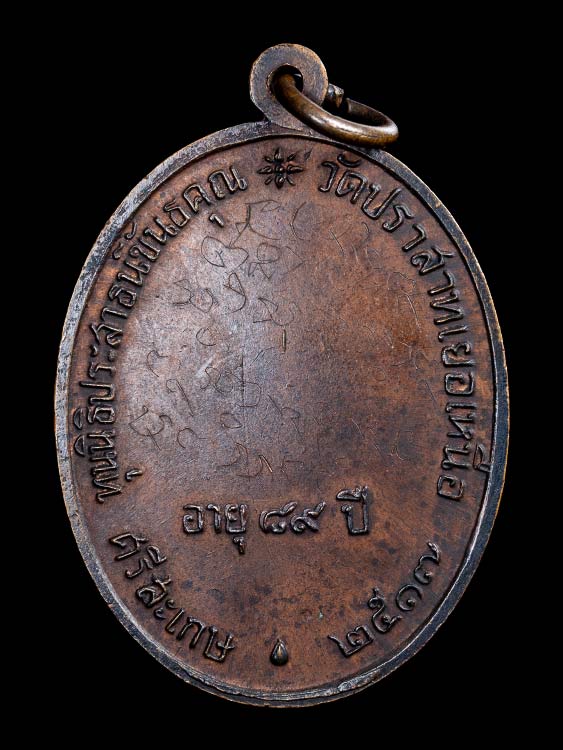 ทุนนิธิประสาธน์ขันธคุณ
วัดปราสาทเยอเหนือ
อายุ ๘๙ ปี
ศรีสะเกษ
๒๕๑๗